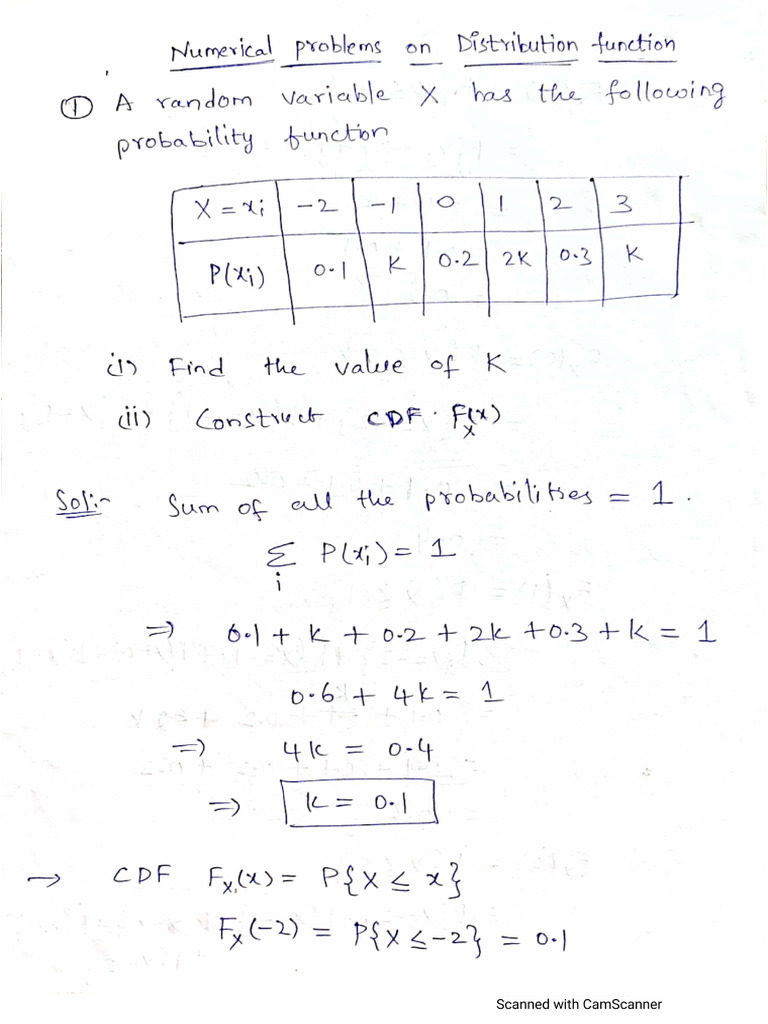 Numerical problems on Distribution function
① A random variable X has the following
probability function
X = xi -2 -1 0 1 2 3
P(xi) 0.1 K 0.2 2K 0.3 K
(i) Find the value of K
(ii) Construct CDF. FX(x)
Sol:- Sum of all the probabilities = 1.
Σ P(xi) = 1
i
⇒ 0.1 + K + 0.2 + 2K + 0.3 + K = 1
0.6 + 4K = 1
⇒ 4K = 0.4
⇒ K = 0.1
→ CDF FX(x) = P{X ≤ x}
FX(-2) = P{X ≤ -2} = 0.1
Scanned with CamScanner